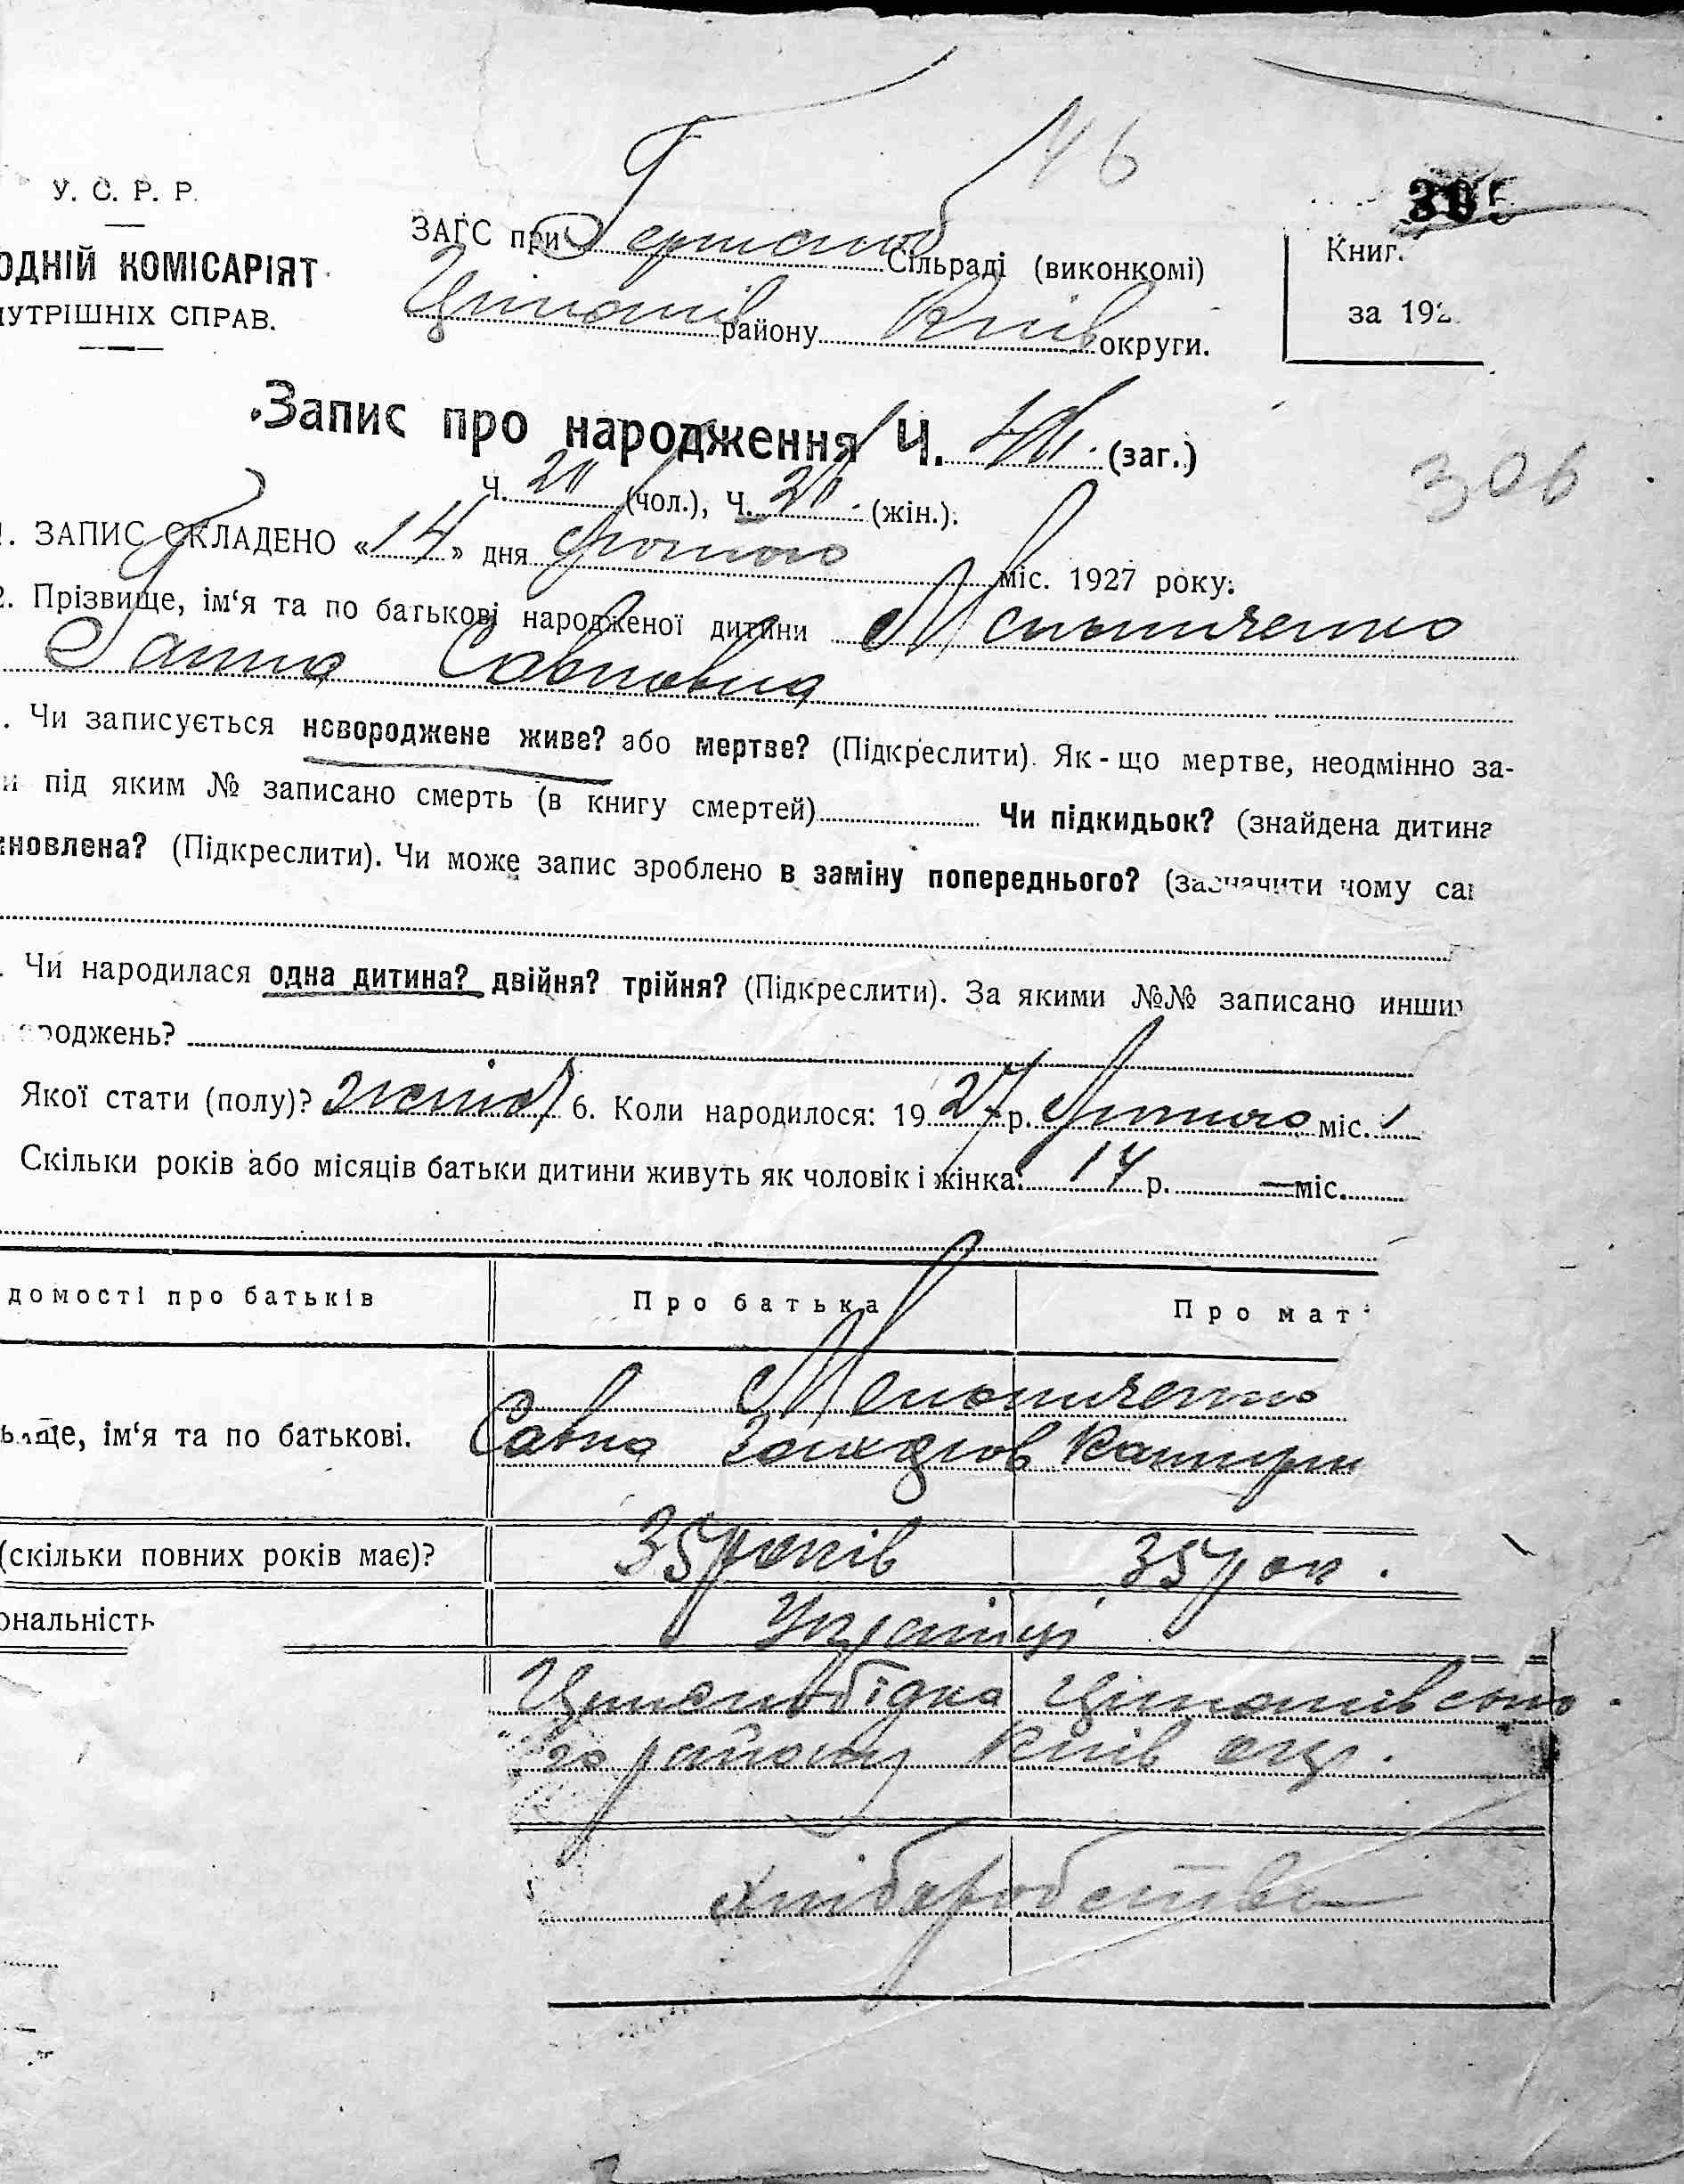 46
У. С. Р. Р.
305
ЗАГС при Германов Сільраді (виконкомі)
Книг.
ОДНІЙ КОМІСАРІЯТ
району Київ округи.
за 192
НУТРІШНІХ СПРАВ.
Запис про народження Ч. (заг.)
306
Ч. 20 (чол.), Ч. (жін.).
1. ЗАПИС СКЛАДЕНО «14» дня лютого міс. 1927 року.
2. Прізвище, ім‘я та по батькові народженої дитини Мельниченко
Ганна Савковна
. Чи записується новороджене живе? або мертве? (Підкреслити). Як-що мертве, неодмінно за-
и під яким № записано смерть (в книгу смертей) Чи підкидьок? (знайдена дитина
новлена? (Підкреслити). Чи може запис зроблено в заміну попереднього? (зазначити чому са
. Чи народилася одна дитина? двійня? трійня? (Підкреслити). За якими №№ записано инши
роджень?
Якої стати (полу)? жіноч 6. Коли народилося: 1927 р. Лютого міс. 1
Скільки років або місяців батьки дитини живуть як чоловік і жінка: 14 р. — міс.
домості про батьків
Про батька
Про мат
Мельниченко
ще, ім‘я та по батькові.
Савка Захарков
(скільки повних років має)?
35 років
35 рок.
ональність
Українці
го району Київ окр.
хліборобство